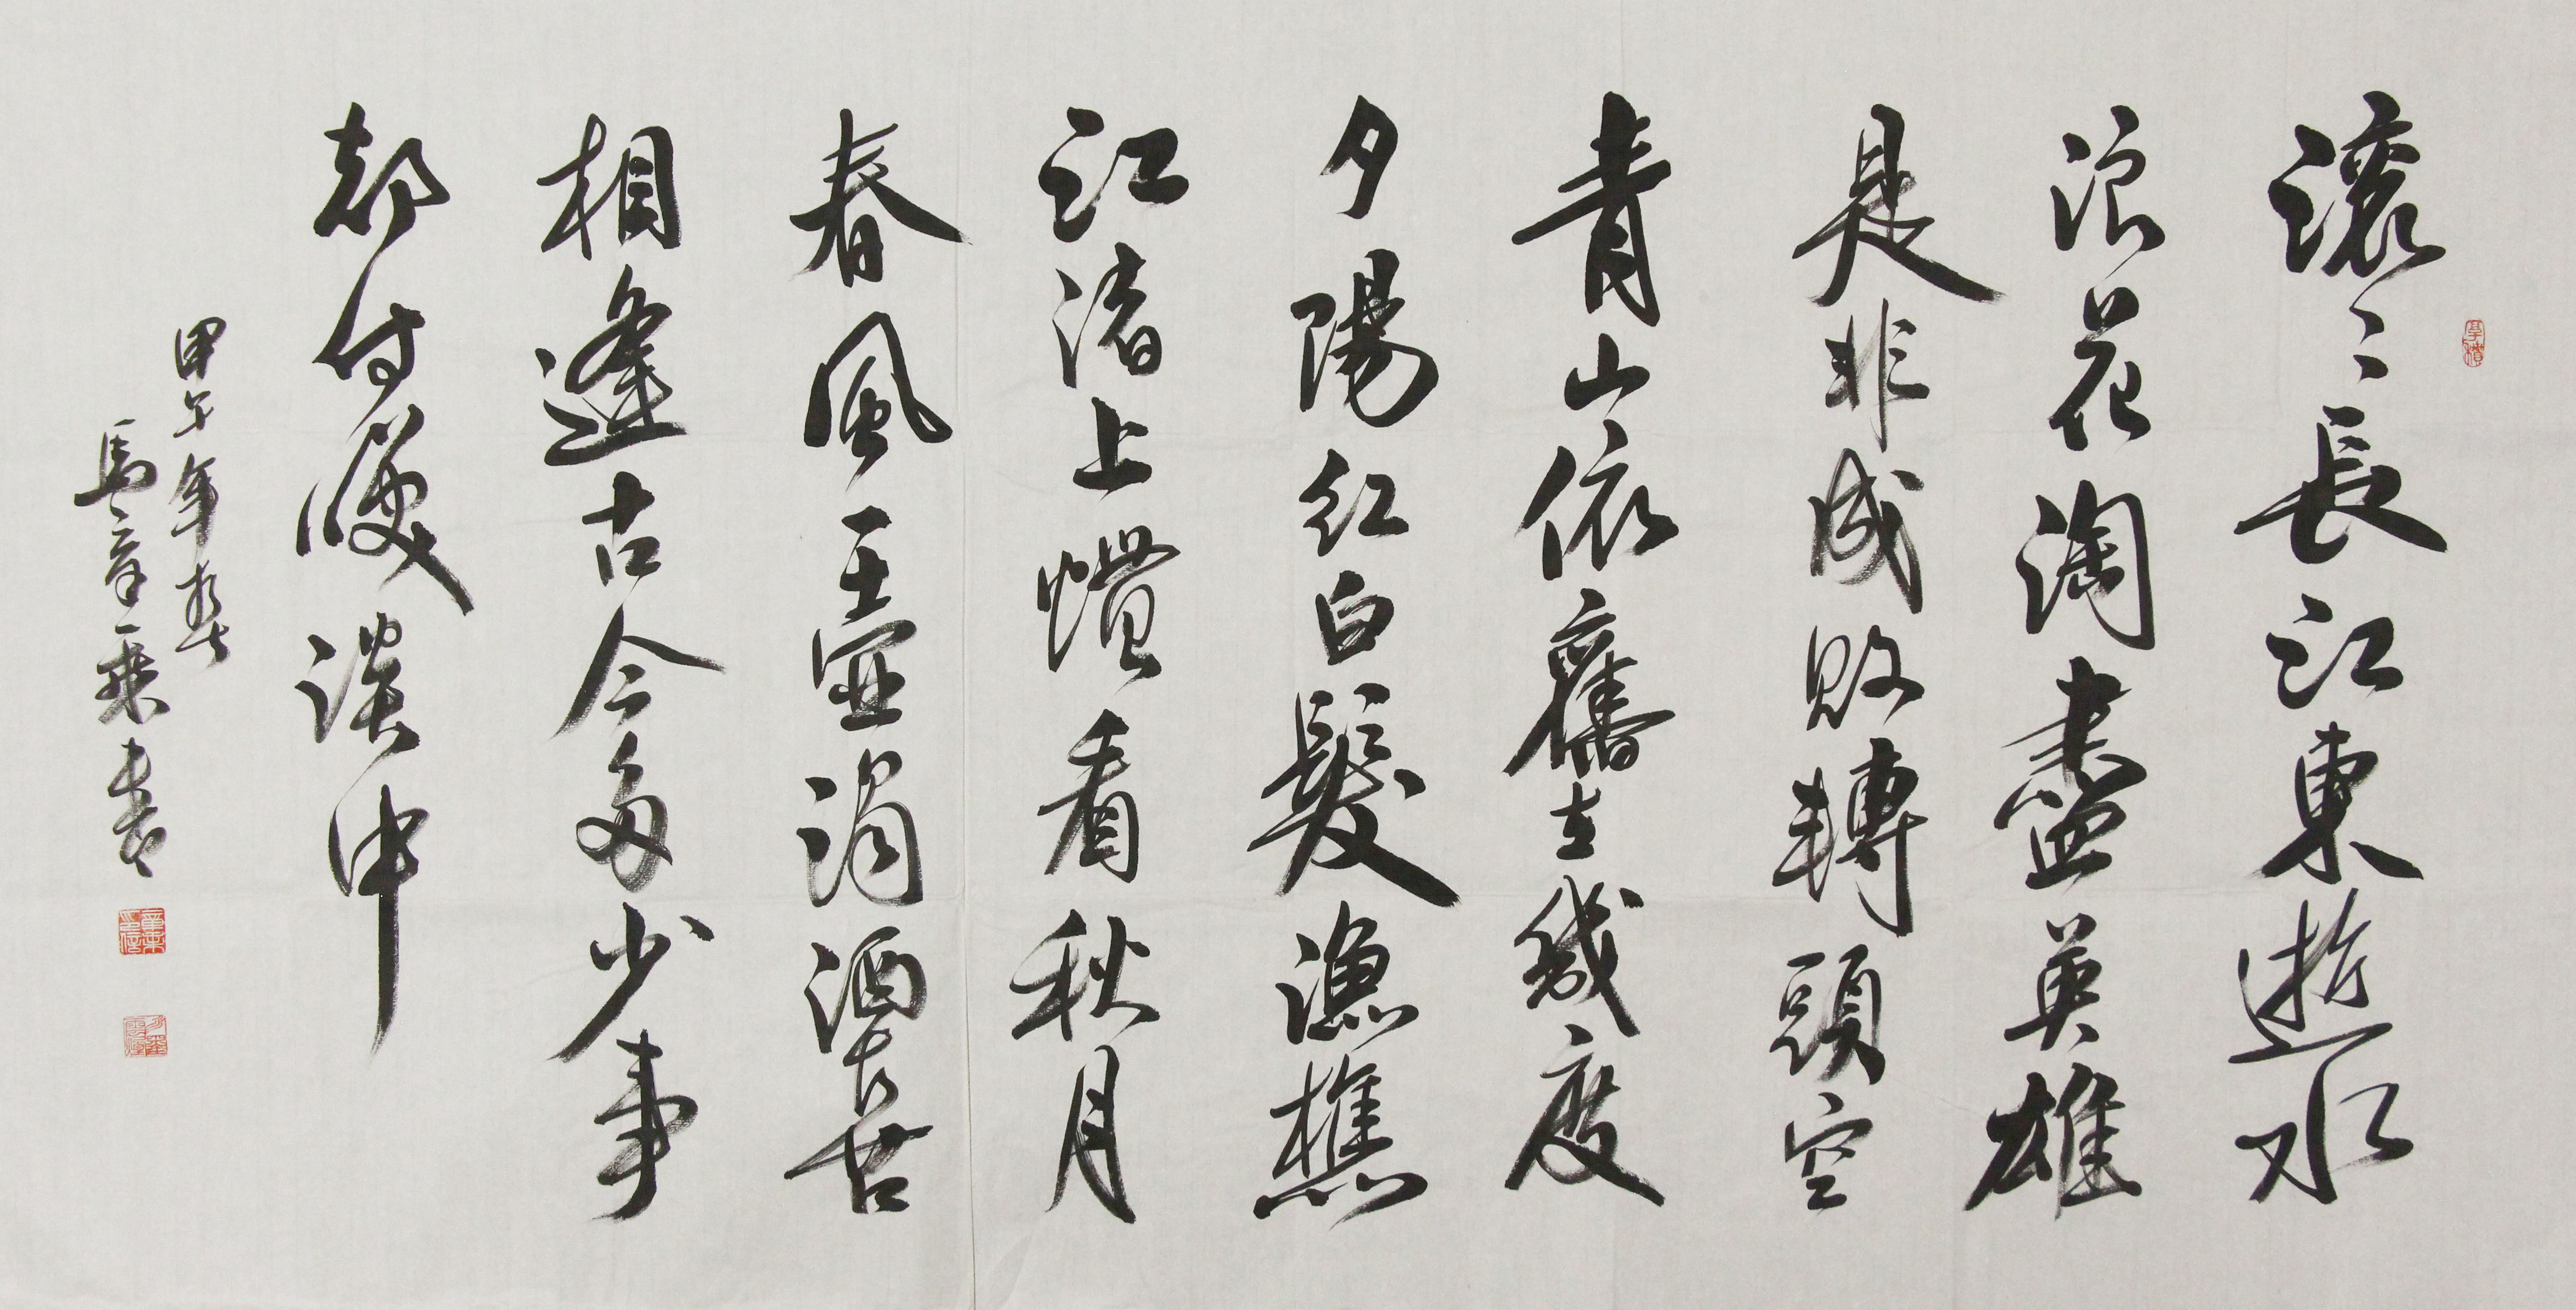 滾〻長江東逝水
浪花淘盡英雄
是非成敗轉頭空
青山依舊在幾度
夕陽紅白髮漁樵
江渚上慣看秋月
春風一壺濁酒喜
相逢古今多少事
都付談中
甲午年
馬章乘書